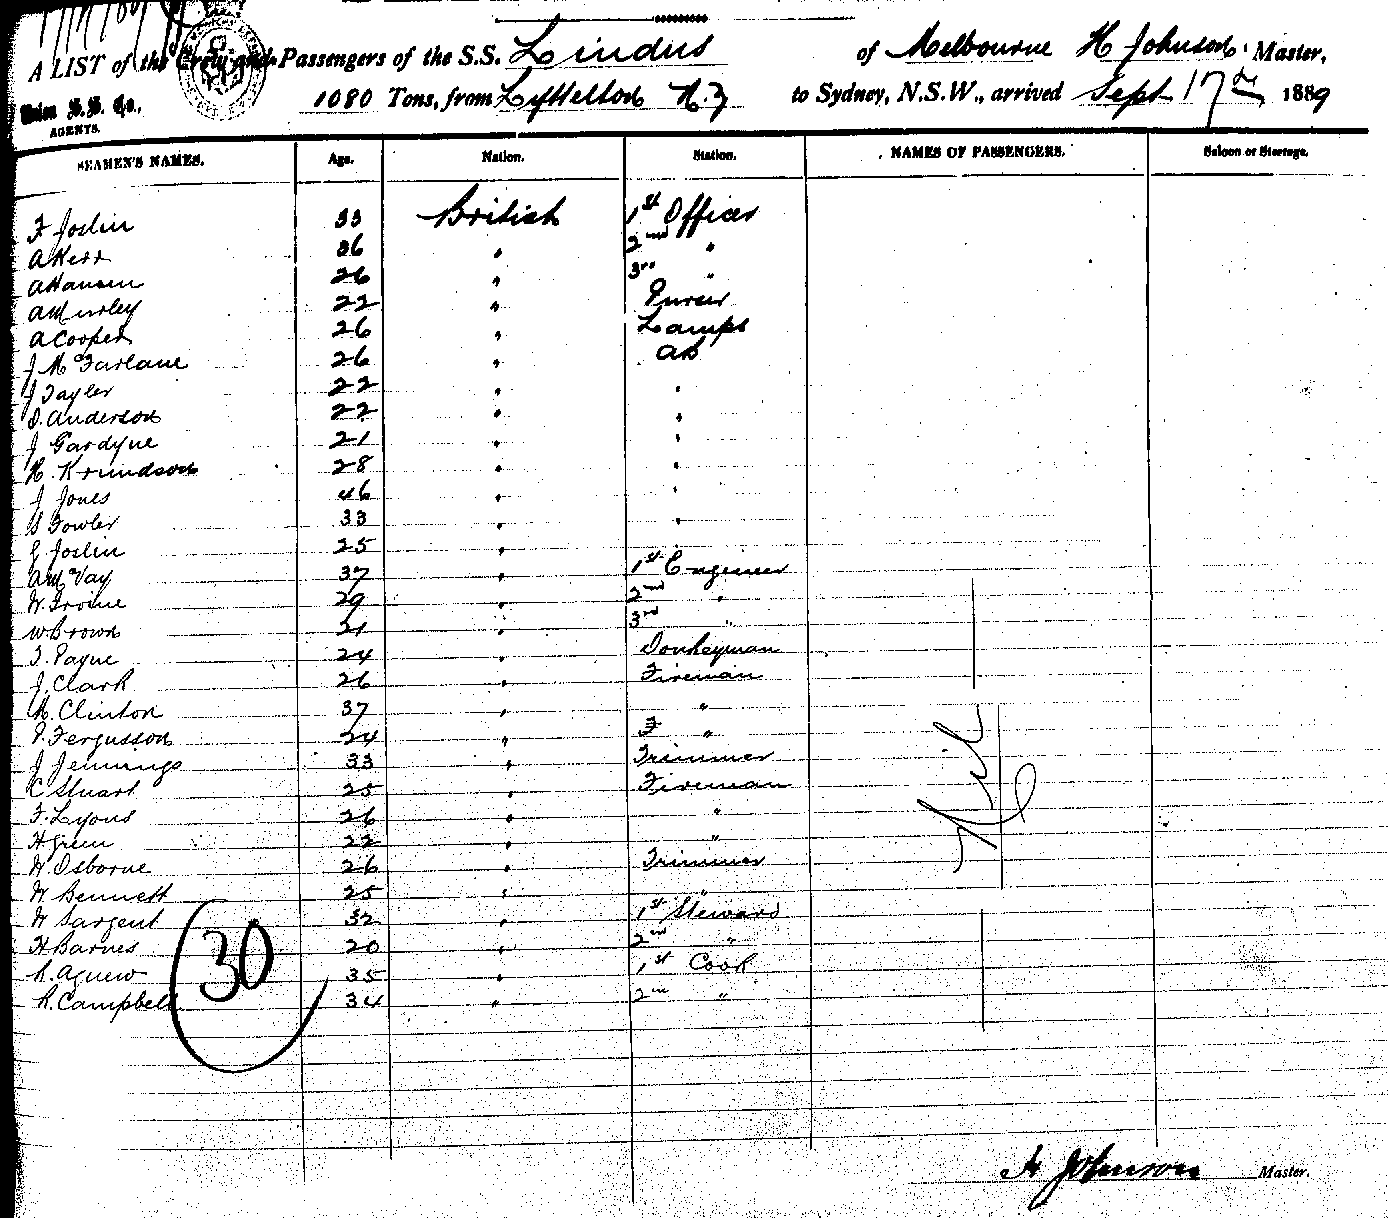 A LIST of the Crew and Passengers of the S.S. Lindus of Melbourne H Johnson, Master,
Union S.S. Co., 1080 Tons, from Lyttelton N.Z to Sydney, N.S.W., arrived Sept 17th 1889
AGENTS.
SEAMEN'S NAMES. Age. Nation. Station. NAMES OF PASSENGERS. Saloon or Steerage.
F Joslin 33 British 1st Officer
A Kerr 36 " 2nd "
A Hansen 26 " 3rd "
22 " Purser
A Cooper 26 " Lamps
J McFarlane 26 " AB
J Tayler 22 " "
D. Anderson 22 " "
J Gardyne 21 " "
H. Knundson 28 " "
J Jones 46 " "
S Fowler 33 " "
E Joslin 25 "
A McVay 37 " 1st Engineer
W. Irvine 29 " 2nd "
W Brown 21 " 3rd "
T. Payne 24 " Donkeyman
J. Clark 26 " Fireman
Clinton 37 " "
Fergusson 24 " F "
J Jennings 33 " Trimmer
C Stuart 25 " Fireman
F. Lyons 26 " "
H Green 22 " "
W Osborne 26 " Trimmer
W Bennett 25 " "
W Sargent 32 " 1st Steward
H Barnes 20 " 2nd "
R. Agnew 35 " 1st Cook
R. Campbell 34 " 2nd "
30
Nil
H Johnson Master.